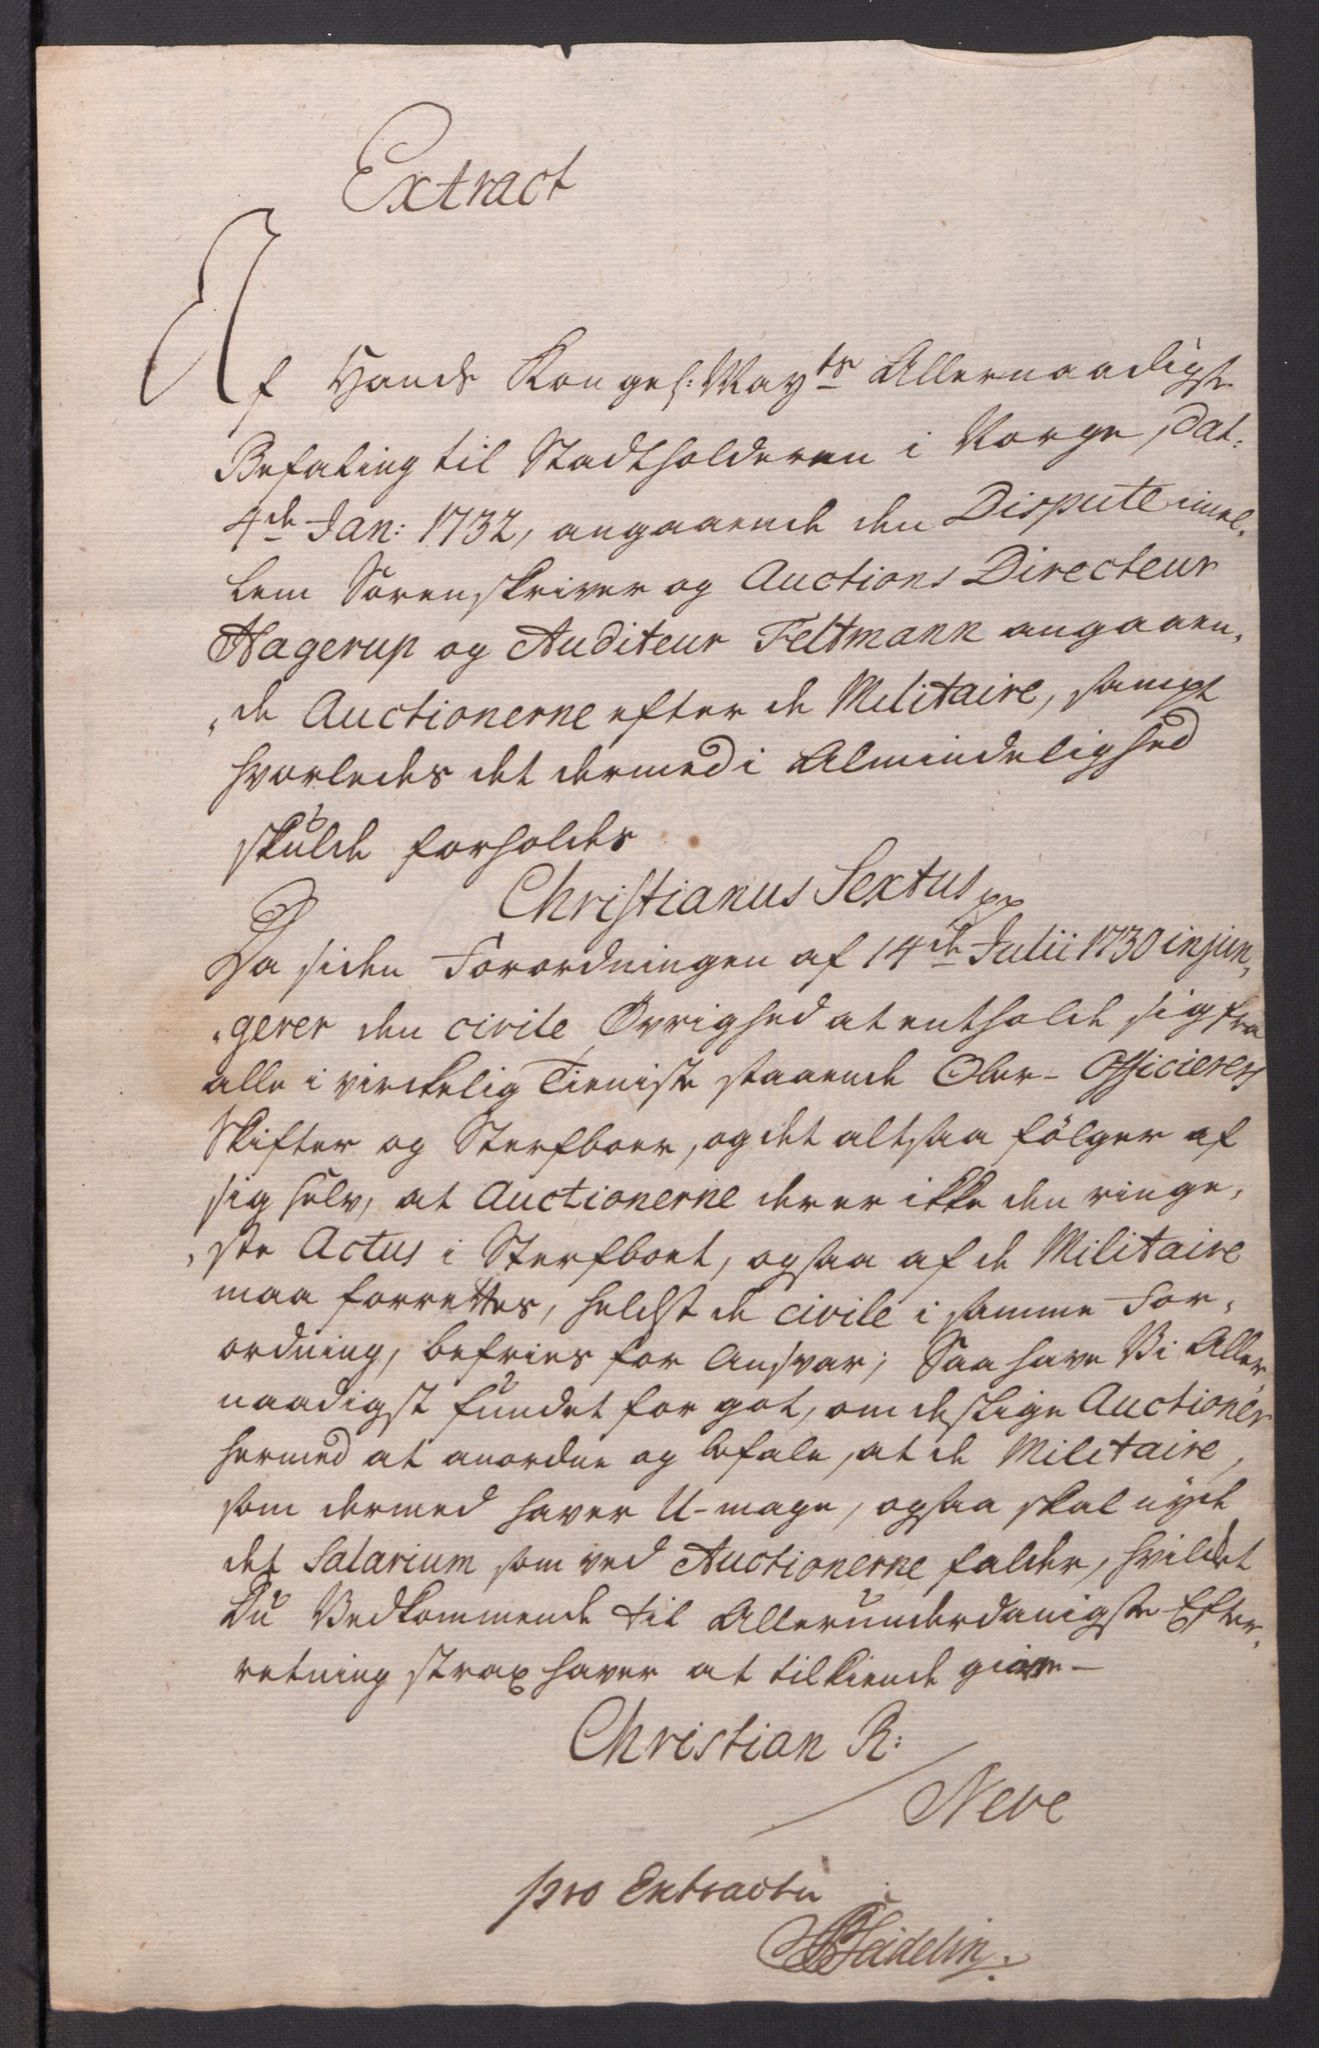 Extract
Af Hands Kongel: May<sup>ts</sup> Allernaadigste
Befaling til Stadtholderen i Norge, Dat:
4<sup>de</sup> Jan: 1732, angaaende den Dispute imel-
lem Sorenskriver og Auctions Directeur
Hagerup og Auditeur Feltmann angaaen-
de Auctionerne efter de Militaire, sampt
hvorledes det dermed i Almindelighed
skulde forholdes
Christianus Sextus pp
Da siden Forordningen af 14<sup>de</sup> Julii 1730 injun-
gerer den civile Øvrighed at entholde sig fra
alle i virckelig Tieniste staaende Ober-Officierers
Skifter og Sterfboer, og det altsaa fölger af
sig selv, at Auctionerne der er ikke den ringe-
ste Actus i Sterfboet, ogsaa af de Militaire
maa forrettes, helst de civile i samme For-
ordning, befries for Ansvar; Saa have Vi Aller-
naadigst fundet for got, om deslige Auctioner
hermed at anordne og befale, at de Militaire,
som dermed haver U-mage, ogsaa skal nyde
det Salarium som ved Auctionerne falder, hvilcket
Du Vedkommende til Allerunderdanigste Efter-
retning strax haver at tilkiende give
Christian R:
/ Neve
pro Extractu
Heidelin.